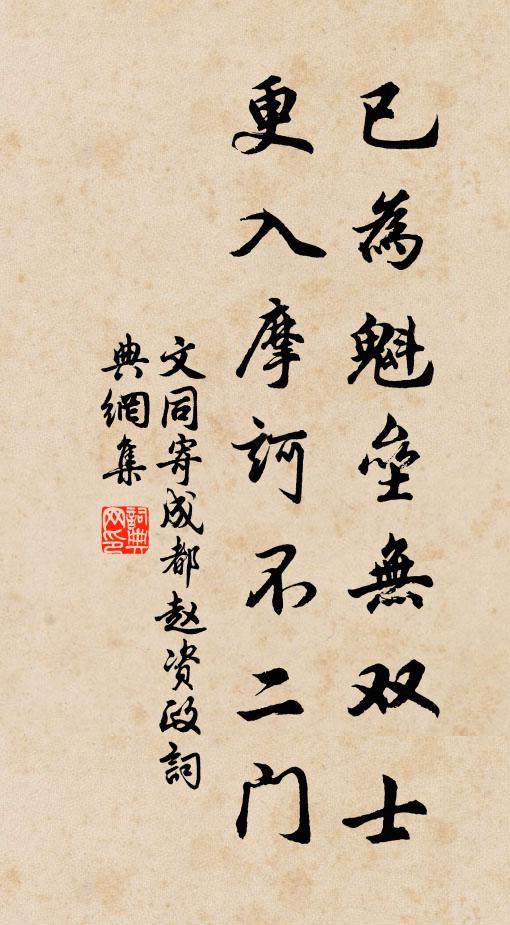 已為魁壘無双士
更入摩訶不二门
文同寄成都赵资政詞
典網集
詞典
网印